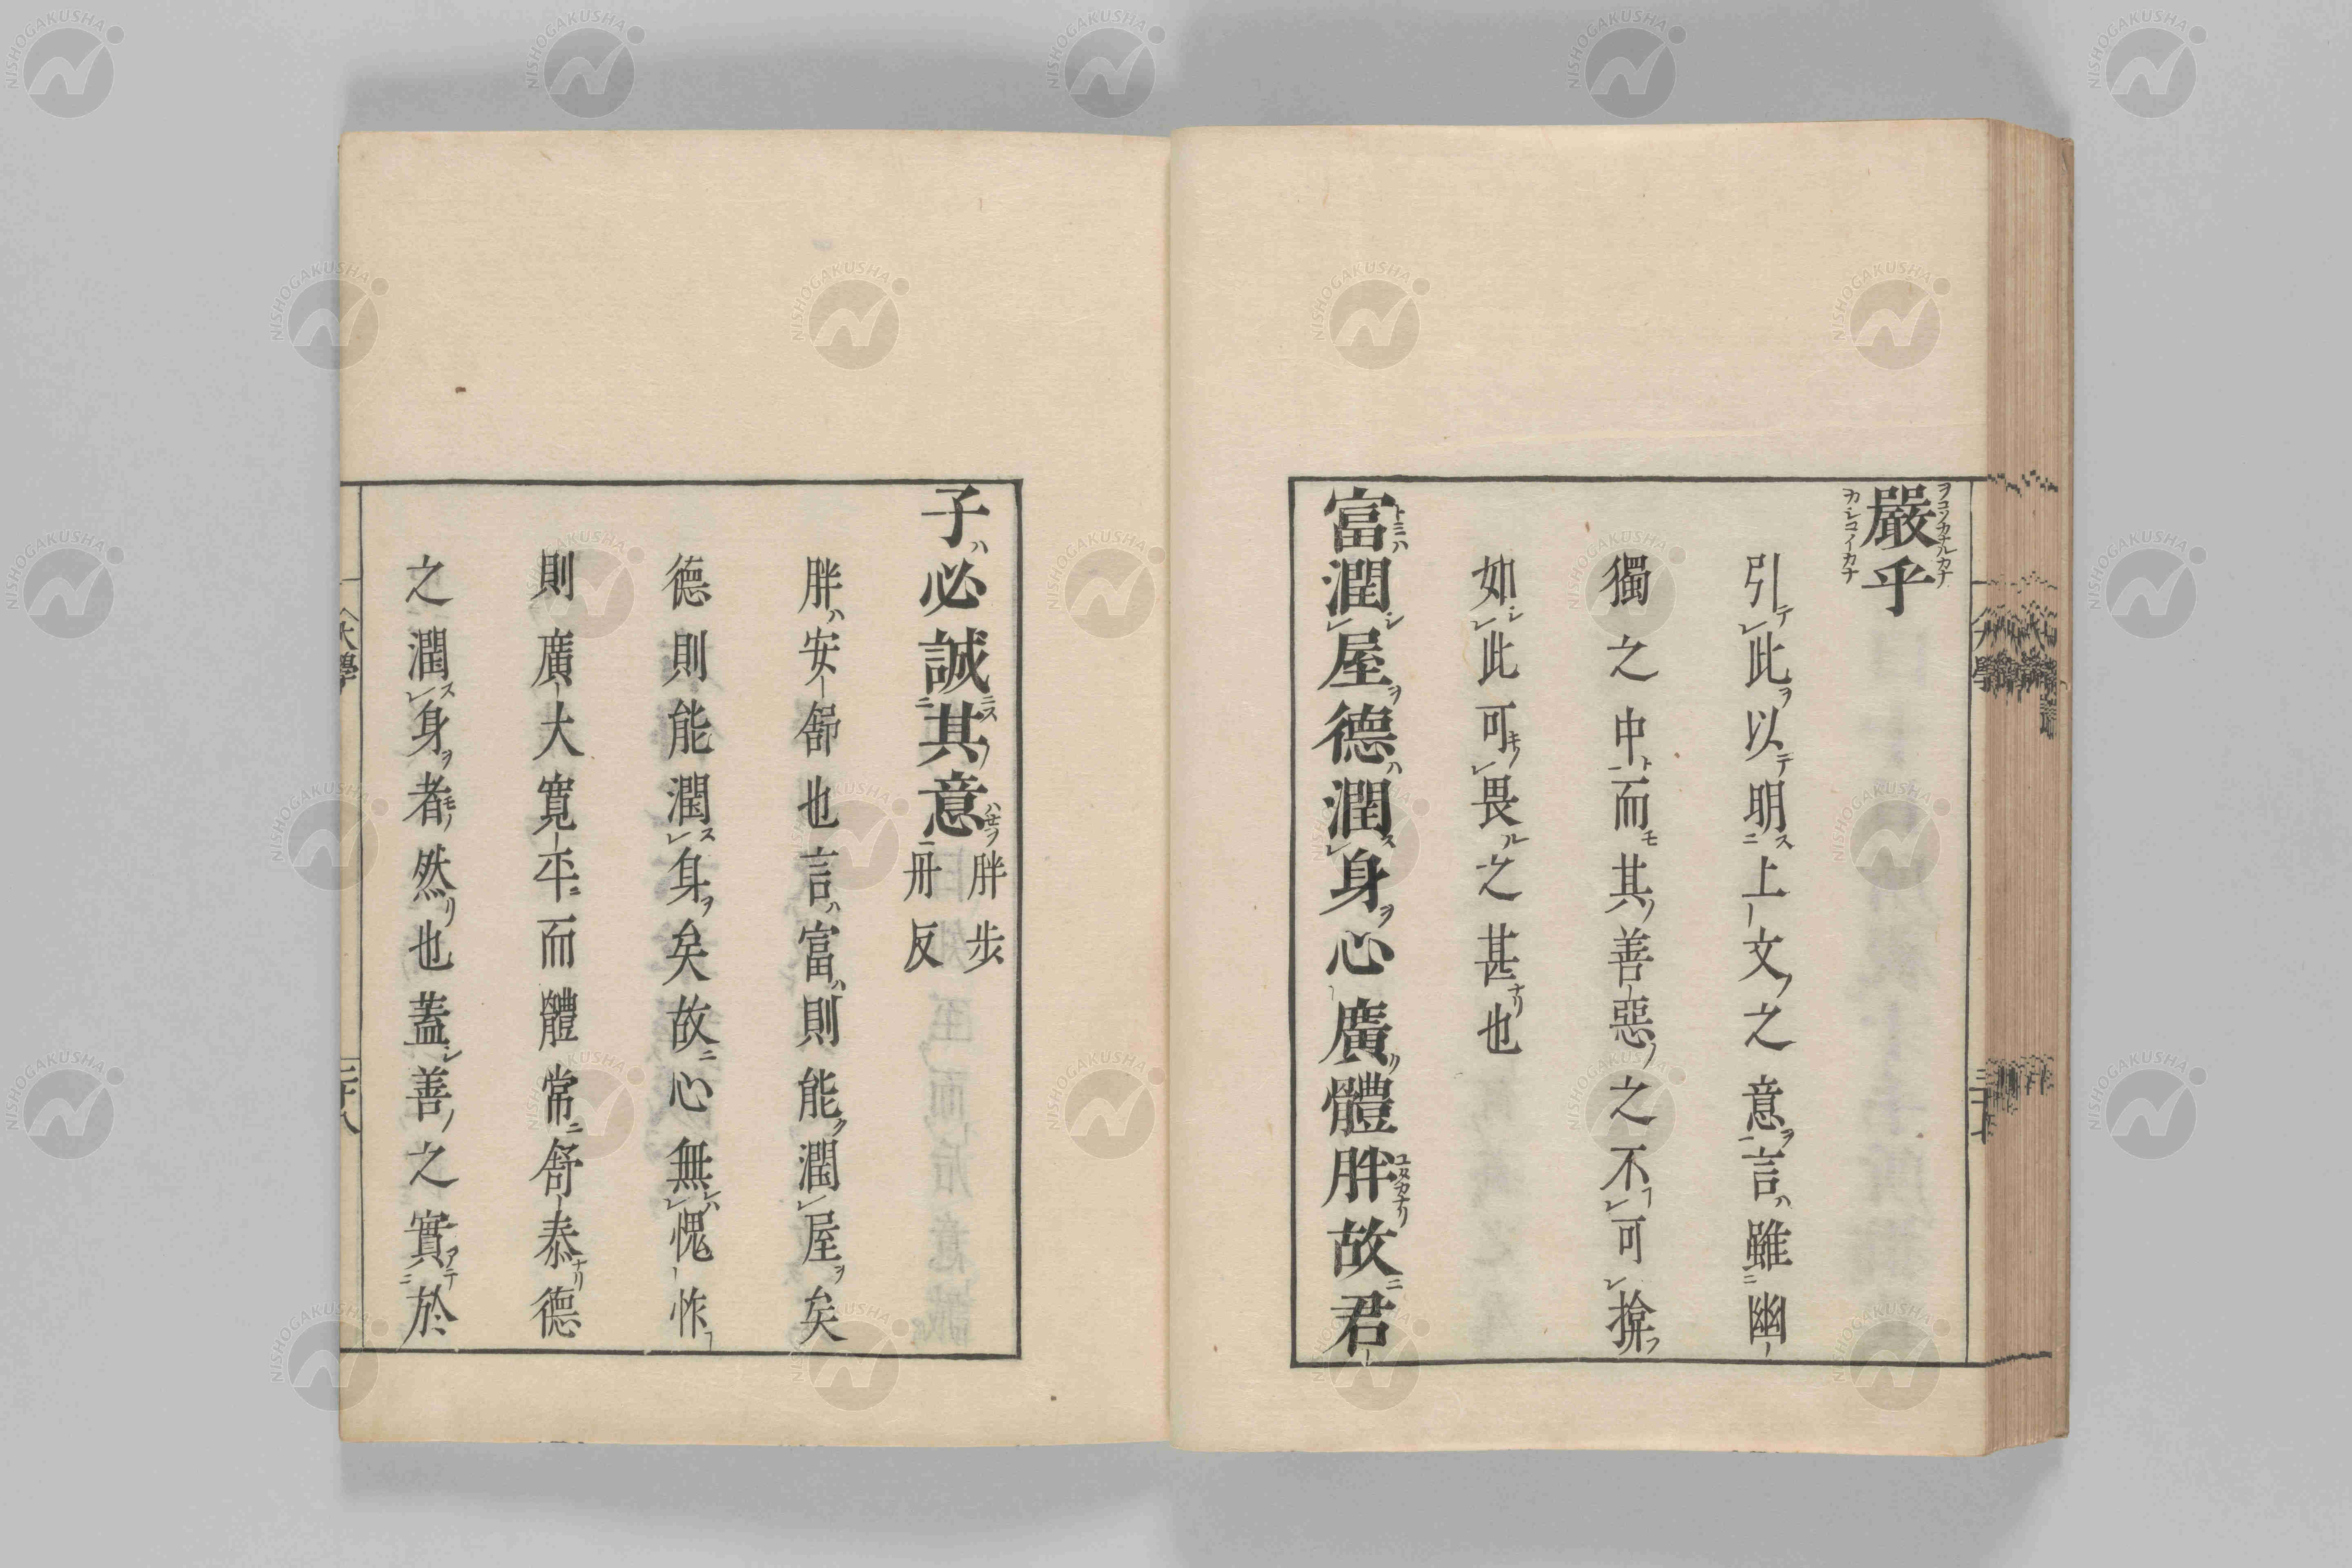 嚴乎
引此以明上文之意言雖幽
獨之中而其善惡之不可揜
如此可畏之甚也
富潤屋德潤身心廣體胖故君
子必誠其意胖步丹反
胖安舒也言富則能潤屋矣
德則能潤身矣故心無愧怍
則廣大寬平而體常舒泰德
之潤身者然也蓋善之實於
大學
二十八
NISHOGAKUSHA